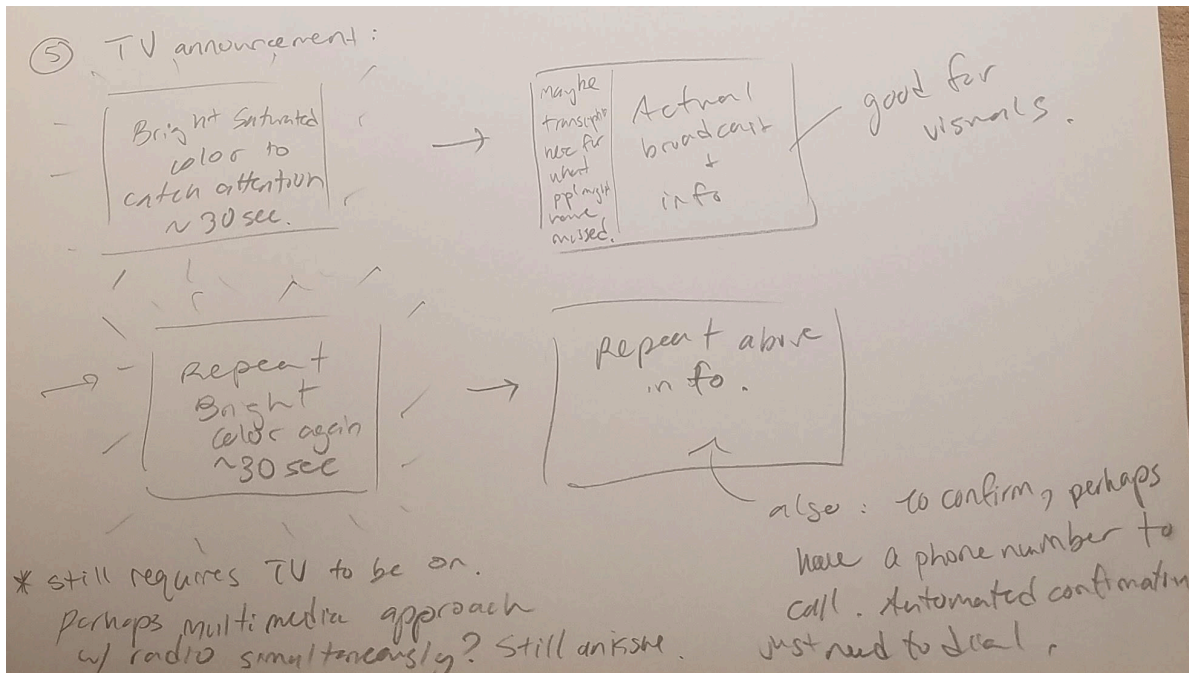 ⑤ TV announcement:
Bright Saturated
color to
catch attention
~ 30 sec.
maybe
transcript
here for
what
ppl might
have
missed.
Actual
broadcast
+
info
good for
visuals.
Repeat
Bright
color again
~30 sec
Repeat above
info.
also: to confirm, perhaps
have a phone number to
call. Automated confirmation
just need to dial.
* still requires TV to be on.
Perhaps multimedia approach
w/ radio simultaneously? Still an issue.